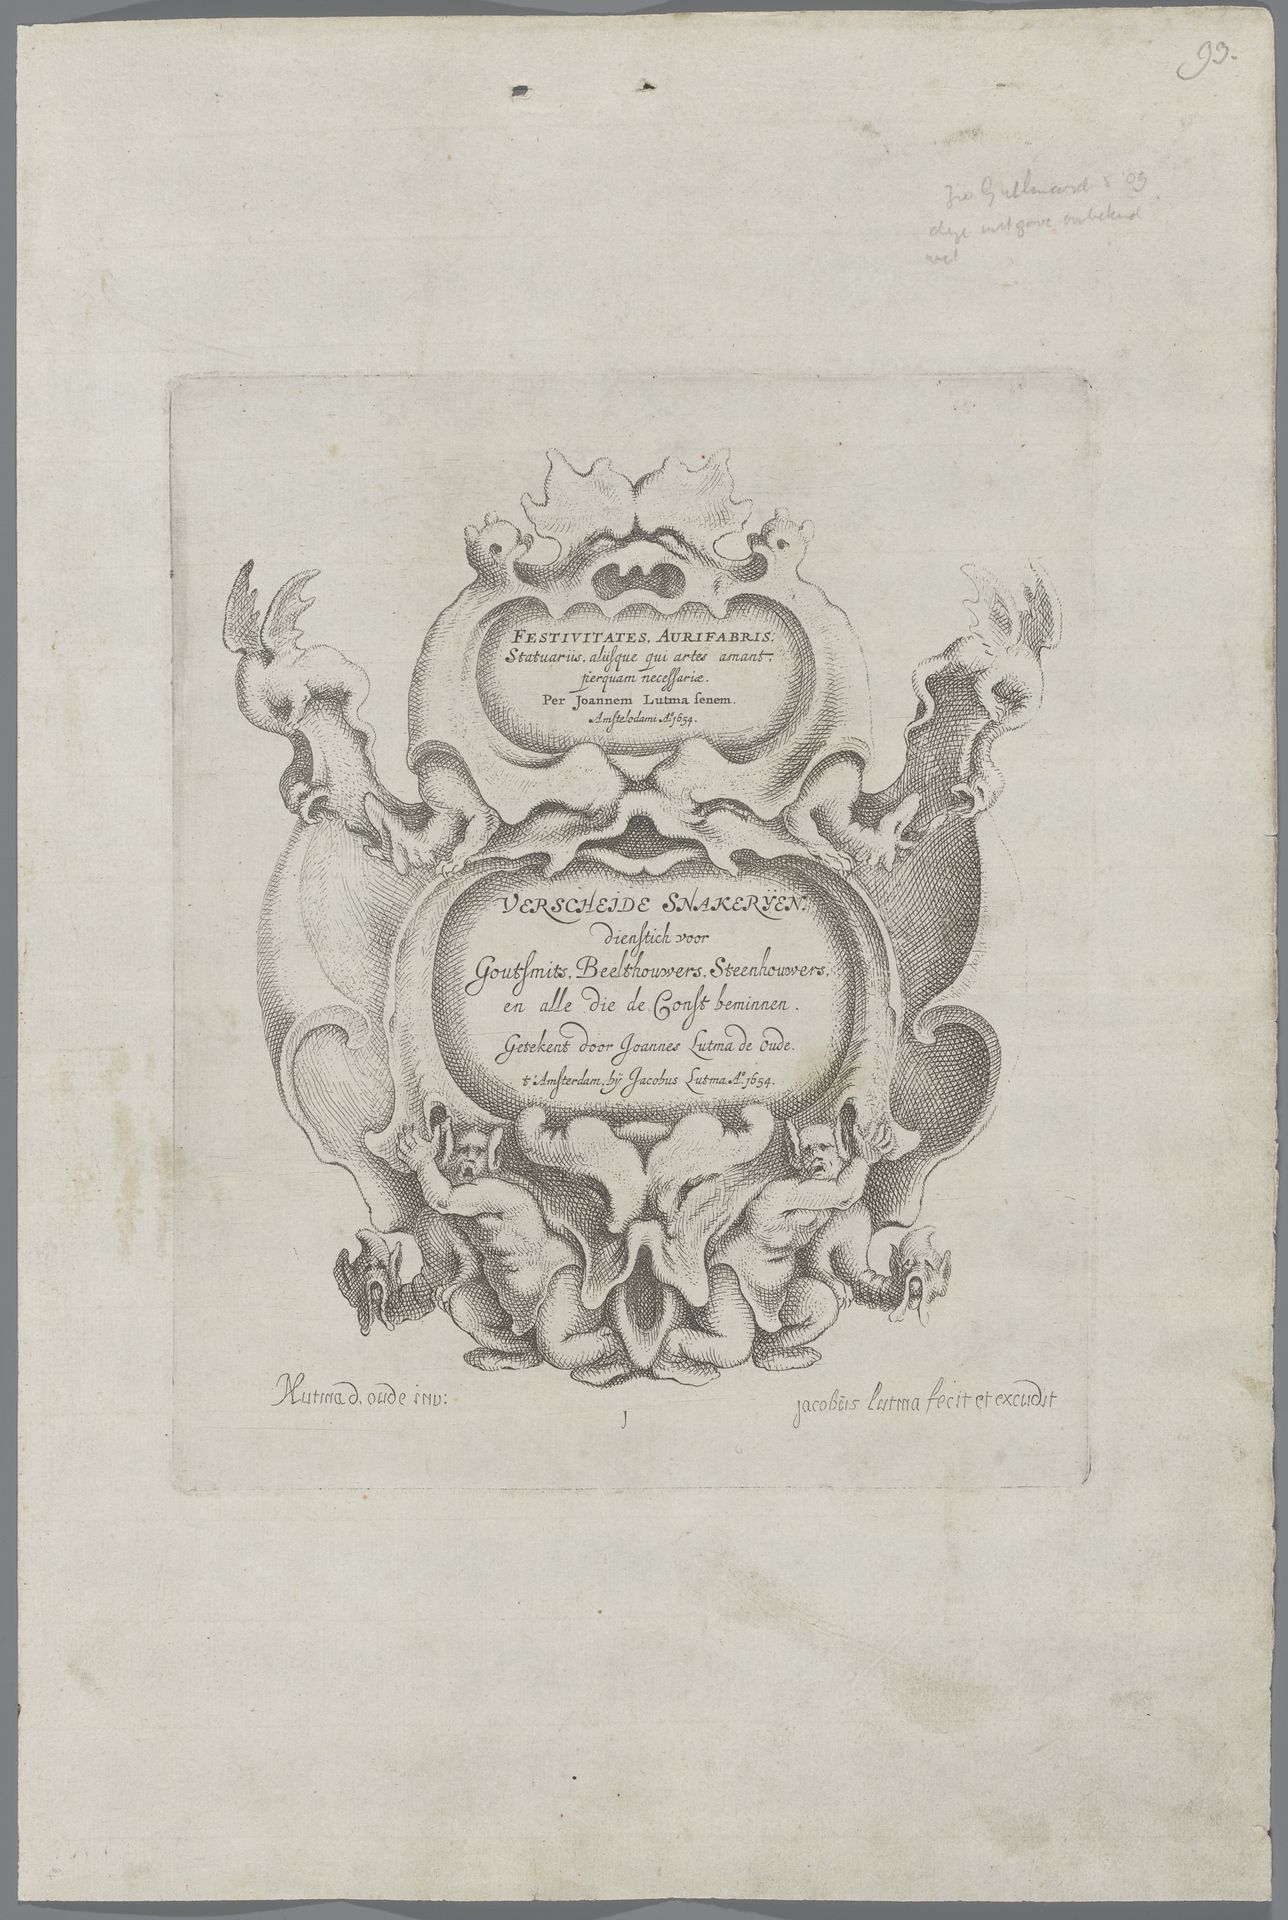 93.
deze uitgave onbekend
FESTIVITATES, AURIFABRIS,
Statuariis, aliisque qui artes amant,
perquam neceſſariæ.
Per Joannem Lutma ſenem.
Amſtelodami Aº1654.
VERSCHEIDE SNAKERŸEN,
dienſtich voor
Goutſmits, Beelthouwers, Steenhouwers,
en alle die de Conſt beminnen.
Getekent door Joannes Lutma de Oude.
t'Amſterdam, bÿ Jacobus Lutma. Aº 1654.
JLutma d, oude inv:
jacobűs lutma fecit et excudit
1